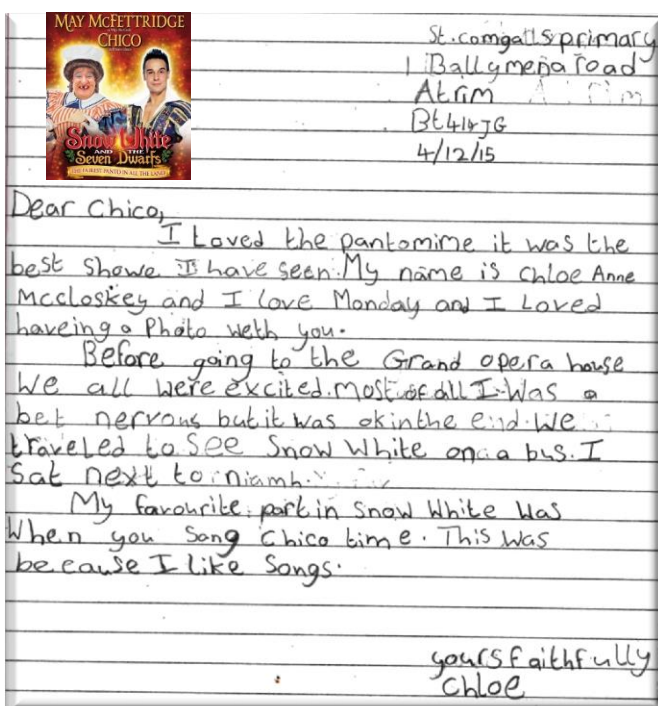 MAY McFETTRIDGE
CHICO
Snow White
AND THE
Seven Dwarfs
THE FAIREST PANTO IN ALL THE LAND!
St.comgallsprimary
1 Ballymena road
Atrim
Bt414JG
4/12/15
Dear Chico,
I Loved the pantomime it was the
best Showe I have seen. My name is Chloe Anne
Mccloskey and I love Monday and I Loved
haveing a Photo weth you.
Before going to the Grand opera house
We all were excited. most of all I Was a
bet nervous but it was ok in the end. We
traveled to See Snow White on a bus. I
Sat next to niamh.
My favourite part in Snow White Was
When you Song Chico time. This was
because I like Songs.
yours faithfully
Chloe